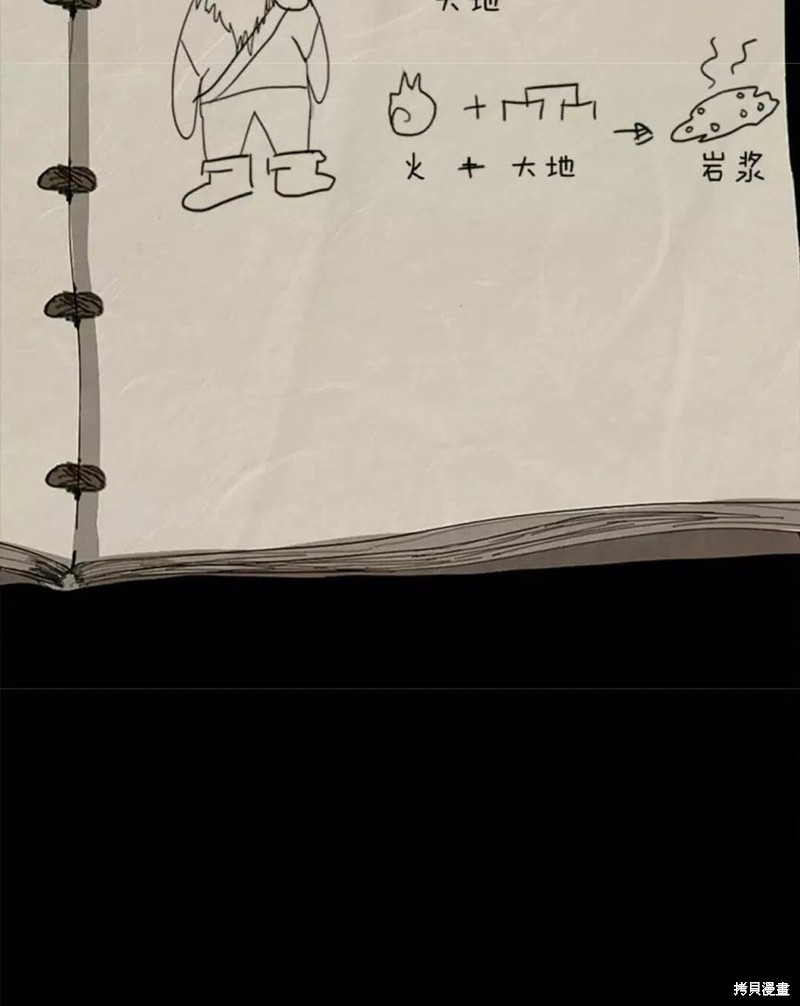 大地
火 + 大地
岩浆
拷貝漫畫